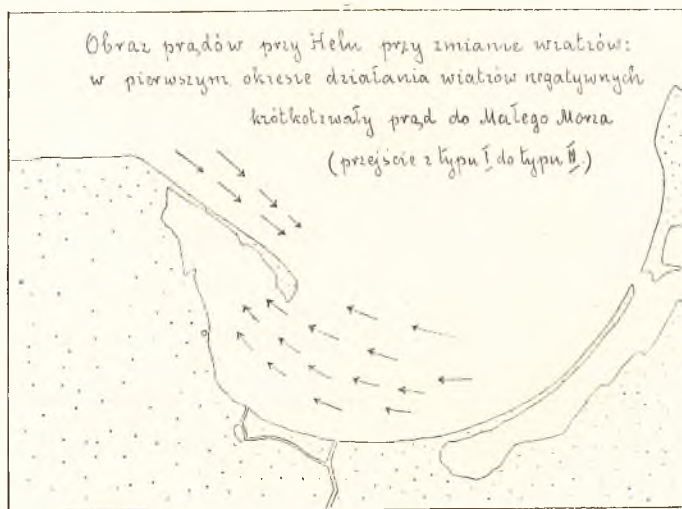 Obraz prądów przy Helu przy zmianie wiatrów:
w pierwszym okresie działania wiatrów negatywnych
krótkotrwały prąd do Małego Morza
(przejście z typu I do typu II.)